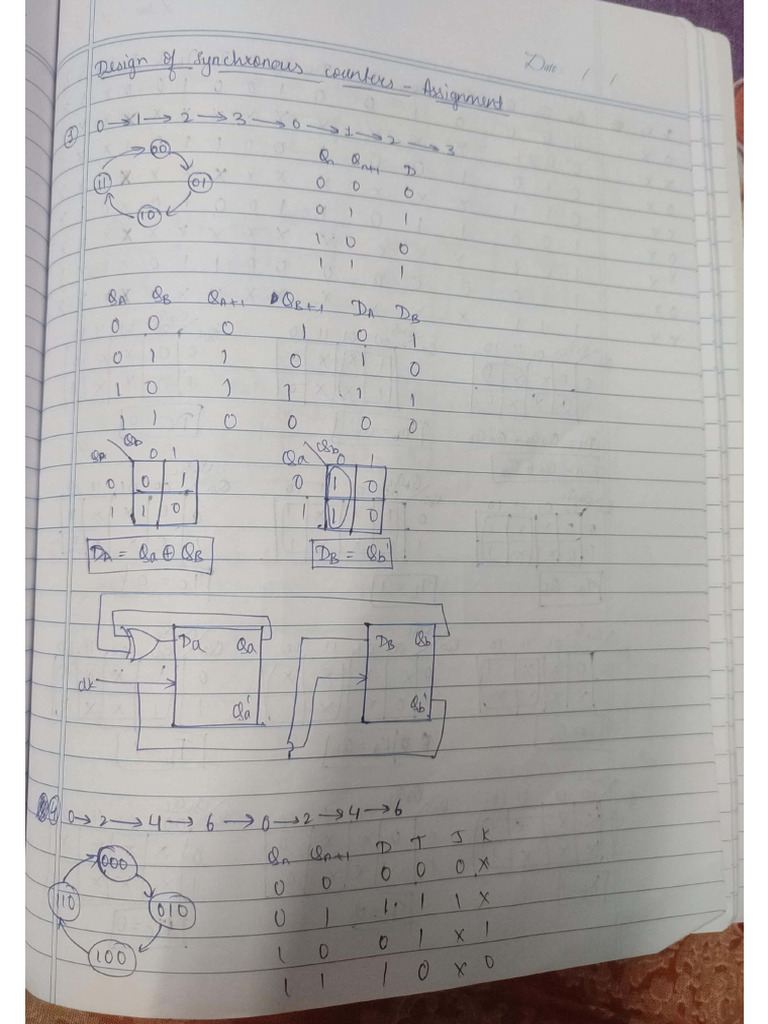 Design of Synchronous counters - Assignment
Date / /
1 0 → 1 → 2 → 3 → 0 → 1 → 2 → 3
00
11 01
10
Qn Qn+1 D
0 0 0
0 1 1
1 0 0
1 1 1
QA QB QA+1 QB+1 DA DB
0 0 0 1 0 1
0 1 1 0 1 0
1 0 1 1 1 1
1 1 0 0 0 0
Qa Qb 0 1
0 0 1
1 1 0
Qa Qb 0 1
0 1 0
1 1 0
DA = Qa ⊕ QB DB = Qb'
Da Qa DB Qb
clk
Qa' Qb'
0 → 2 → 4 → 6 → 0 → 2 → 4 → 6
000
110 010
100
Qn Qn+1 D T J K
0 0 0 0 0 X
0 1 1 1 1 X
1 0 0 1 X 1
1 1 1 0 X 0